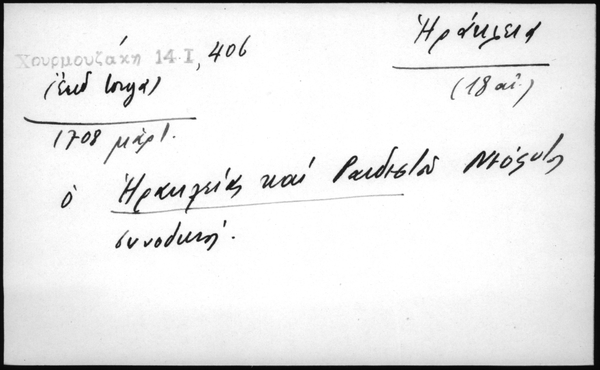 Χουρμουζάκη 14.I, 406
Ἡράκλεια
(18 αἰ.)
1708 μάρτ.
ὁ Ἡρακλείας καὶ Ραιδεστοῦ Νεόφυτος
συνοδική.